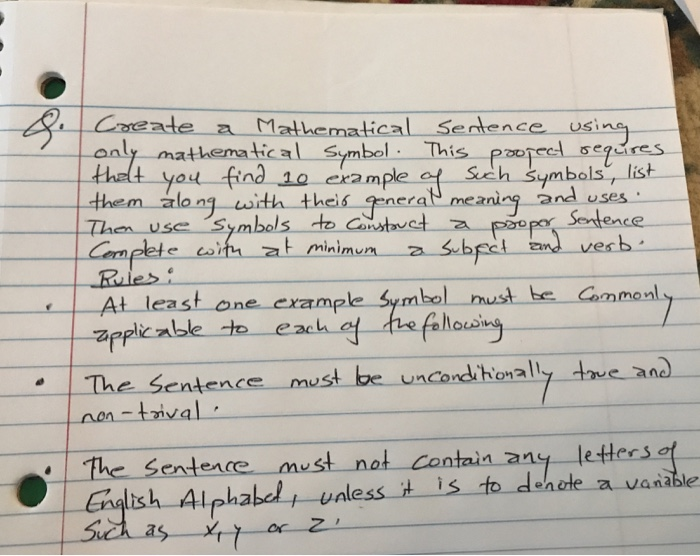 Q. Create a Mathematical Sentence using
only mathematical symbol. This project requires
that you find 10 example of Such symbols, list
them along with their general meaning and uses.
Then use symbols to Construct a proper Sentence
Complete with at minimum a subject and verb.
Rules:
• At least one example Symbol must be Commonly
applicable to each of the following
• The Sentence must be unconditionally true and
non-trival.
• The Sentence must not contain any letters of
English Alphabet, unless it is to denote a variable
Such as x, y or z.